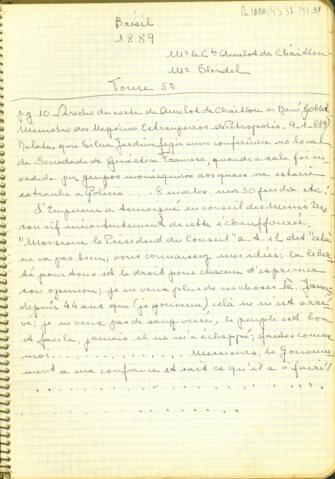 Brésil
1889
Mr le Cte Amelot de Chaillou
Mr Blondel
Tome 53
pg 10 Trecho de carta de Amelot de Chaillou a René Goblet
Ministro dos Negócios Estrangeiros. Petropolis. 9-1-889)
Relata que Silva Jardim fazia uma conferencia no local
da Sociedade de Ginastica Francesa, quando a sala foi in
vadida por grupos monárquicos aos quais não estaria
estranha a Policia ... 8 mortos, uns 30 feridos etc.:
"L'Empereur a témoigné en conseil des Ministres
son vif mécontentement de cette échauffourée.
"Monsieur le Président du Conseil" a-t-il dit "cela
ne va pas bien; vous connaissez mes idées: la liber
té pour tous et le droit pour chacun d'exprimer
son opinion; je ne veux plus de ces choses là. Jamais
depuis 44 ans que (je gouverne) celà ne m'est arri
vé; je ne veux pas de sang versé, le peuple est bon
et facile, jamais il ne m'a échappé; faites comme
moi. .......... Messieurs, le Gouverne
ment a ma confiance et sait ce qu'il a à faire"!